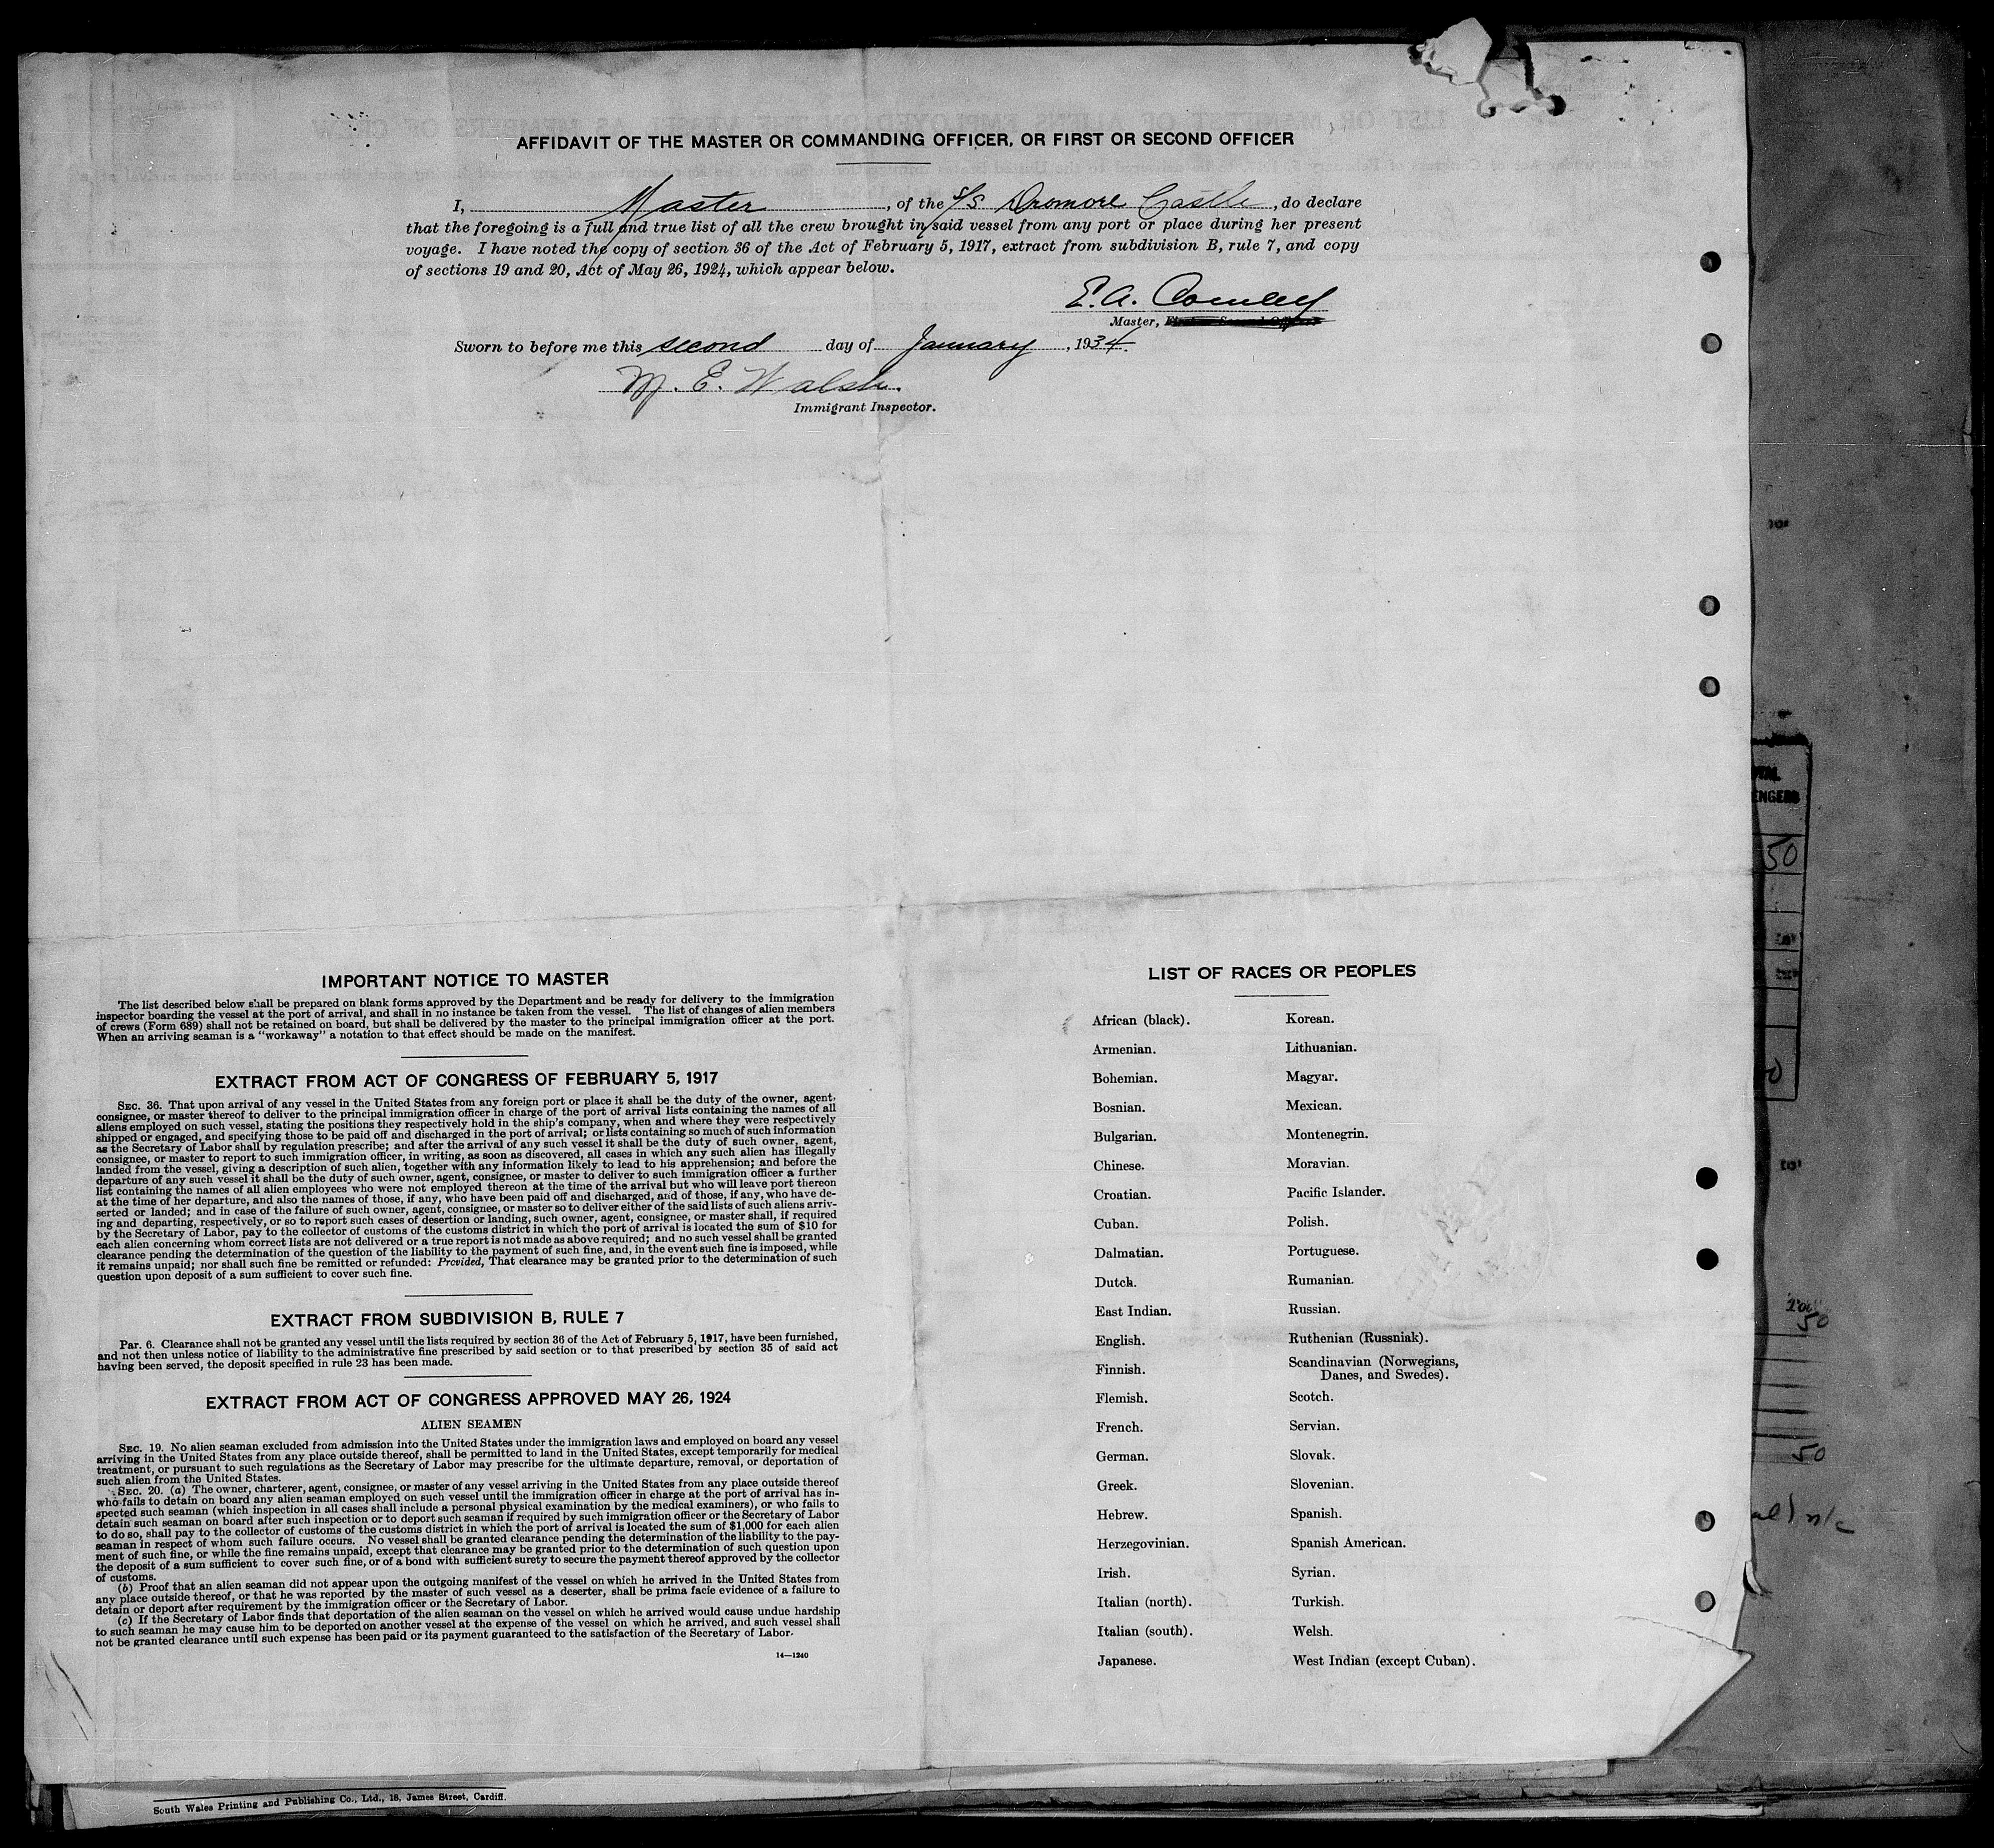 AFFIDAVIT OF THE MASTER OR COMMANDING OFFICER, OR FIRST OR SECOND OFFICER
I, Master, of the S/S Dromore Castle, do declare
that the foregoing is a full and true list of all the crew brought in said vessel from any port or place during her present
voyage. I have noted the copy of section 36 of the Act of February 5, 1917, extract from subdivision B, rule 7, and copy
of sections 19 and 20, Act of May 26, 1924, which appear below.
E. A. Comley
Master,
Sworn to before me this second day of January, 1934.
M. E. Walsh.
Immigrant Inspector.
IMPORTANT NOTICE TO MASTER
The list described below shall be prepared on blank forms approved by the Department and be ready for delivery to the immigration
inspector boarding the vessel at the port of arrival, and shall in no instance be taken from the vessel. The list of changes of alien members
of crews (Form 689) shall not be retained on board, but shall be delivered by the master to the principal immigration officer at the port.
When an arriving seaman is a "workaway" a notation to that effect should be made on the manifest.
EXTRACT FROM ACT OF CONGRESS OF FEBRUARY 5, 1917
SEC. 36. That upon arrival of any vessel in the United States from any foreign port or place it shall be the duty of the owner, agent,
consignee, or master thereof to deliver to the principal immigration officer in charge of the port of arrival lists containing the names of all
aliens employed on such vessel, stating the positions they respectively hold in the ship's company, when and where they were respectively
shipped or engaged, and specifying those to be paid off and discharged in the port of arrival; or lists containing so much of such information
as the Secretary of Labor shall by regulation prescribe; and after the arrival of any such vessel it shall be the duty of such owner, agent,
consignee, or master to report to such immigration officer, in writing, as soon as discovered, all cases in which any such alien has illegally
landed from the vessel, giving a description of such alien, together with any information likely to lead to his apprehension; and before the
departure of any such vessel it shall be the duty of such owner, agent, consignee, or master to deliver to such immigration officer a further
list containing the names of all alien employees who were not employed thereon at the time of the arrival but who will leave port thereon
at the time of her departure, and also the names of those, if any, who have been paid off and discharged, and of those, if any, who have de-
serted or landed; and in case of the failure of such owner, agent, consignee, or master so to deliver either of the said lists of such aliens arriv-
ing and departing, respectively, or so to report such cases of desertion or landing, such owner, agent, consignee, or master shall, if required
by the Secretary of Labor, pay to the collector of customs of the customs district in which the port of arrival is located the sum of $10 for
each alien concerning whom correct lists are not delivered or a true report is not made as above required; and no such vessel shall be granted
clearance pending the determination of the question of the liability to the payment of such fine, and, in the event such fine is imposed, while
it remains unpaid; nor shall such fine be remitted or refunded: Provided, That clearance may be granted prior to the determination of such
question upon deposit of a sum sufficient to cover such fine.
EXTRACT FROM SUBDIVISION B, RULE 7
PAR. 6. Clearance shall not be granted any vessel until the lists required by section 36 of the Act of February 5, 1917, have been furnished,
and not then unless notice of liability to the administrative fine prescribed by said section or to that prescribed by section 35 of said act
having been served, the deposit specified in rule 23 has been made.
EXTRACT FROM ACT OF CONGRESS APPROVED MAY 26, 1924
ALIEN SEAMEN
SEC. 19. No alien seaman excluded from admission into the United States under the immigration laws and employed on board any vessel
arriving in the United States from any place outside thereof, shall be permitted to land in the United States, except temporarily for medical
treatment, or pursuant to such regulations as the Secretary of Labor may prescribe for the ultimate departure, removal, or deportation of
such alien from the United States.
SEC. 20. (a) The owner, charterer, agent, consignee, or master of any vessel arriving in the United States from any place outside thereof
who fails to detain on board any alien seaman employed on such vessel until the immigration officer in charge at the port of arrival has in-
spected such seaman (which inspection in all cases shall include a personal physical examination by the medical examiners), or who fails to
detain such seaman on board after such inspection or to deport such seaman if required by such immigration officer or the Secretary of Labor
to do so, shall pay to the collector of customs of the customs district in which the port of arrival is located the sum of $1,000 for each alien
seaman in respect of whom such failure occurs. No vessel shall be granted clearance pending the determination of the liability to the pay-
ment of such fine, or while the fine remains unpaid, except that clearance may be granted prior to the determination of such question upon
the deposit of a sum sufficient to cover such fine, or of a bond with sufficient surety to secure the payment thereof approved by the collector
of customs.
(b) Proof that an alien seaman did not appear upon the outgoing manifest of the vessel on which he arrived in the United States from
any place outside thereof, or that he was reported by the master of such vessel as a deserter, shall be prima facie evidence of a failure to
detain or deport after requirement by the immigration officer or the Secretary of Labor.
(c) If the Secretary of Labor finds that deportation of the alien seaman on the vessel on which he arrived would cause undue hardship
to such seaman he may cause him to be deported on another vessel at the expense of the vessel on which he arrived, and such vessel shall
not be granted clearance until such expense has been paid or its payment guaranteed to the satisfaction of the Secretary of Labor.
14—1240
LIST OF RACES OR PEOPLES
African (black). Korean.
Armenian. Lithuanian.
Bohemian. Magyar.
Bosnian. Mexican.
Bulgarian. Montenegrin.
Chinese. Moravian.
Croatian. Pacific Islander.
Cuban. Polish.
Dalmatian. Portuguese.
Dutch. Rumanian.
East Indian. Russian.
English. Ruthenian (Russniak).
Finnish. Scandinavian (Norwegians,
Danes, and Swedes).
Flemish. Scotch.
French. Servian.
German. Slovak.
Greek. Slovenian.
Hebrew. Spanish.
Herzegovinian. Spanish American.
Irish. Syrian.
Italian (north). Turkish.
Italian (south). Welsh.
Japanese. West Indian (except Cuban).
South Wales Printing and Publishing Co., Ltd., 18, James Street, Cardiff.
50
50
50